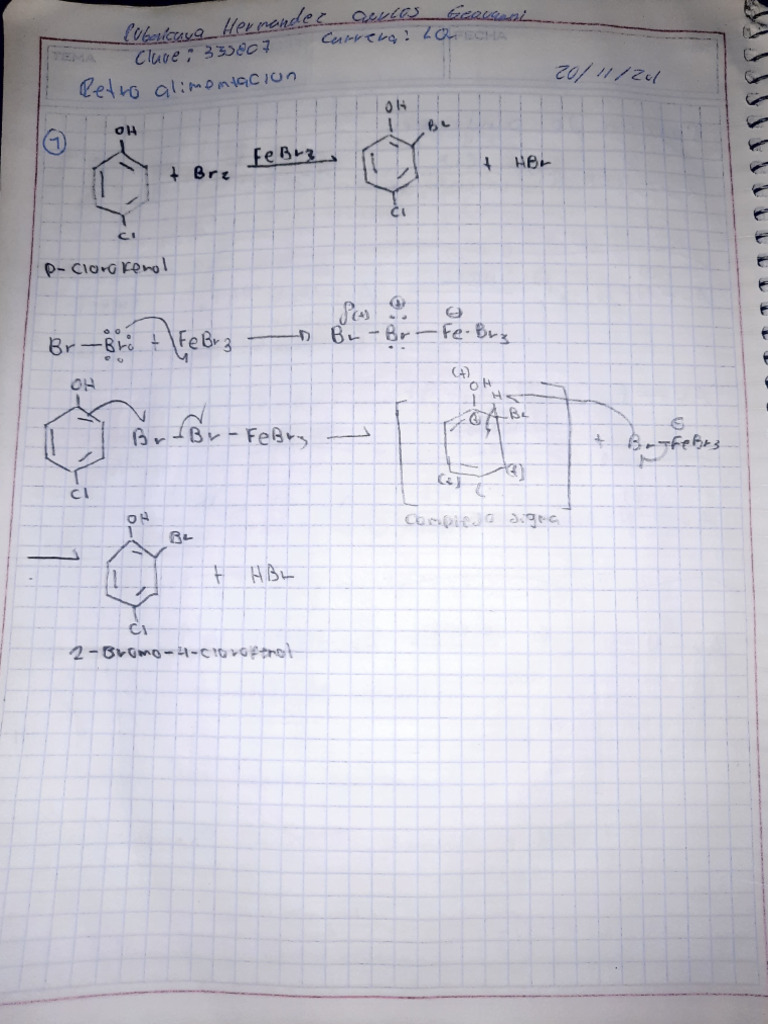 Hernandez
Clave: 333807 Carrera: LQ
TEMA FECHA
Retro alimentacion 20/11/24
1
OH OH Br
+ Br2 FeBr3 + HBr
Cl Cl
p-clorofenol
δ(+) (+) (-)
Br - Br + FeBr3 Br - Br - Fe-Br3
OH (+) OH H
Br - Br - FeBr3 (+) Br + Br - FeBr3 (-)
Cl (+) (+)
complejo sigma
OH Br
+ HBr
Cl
2-Bromo-4-clorofenol